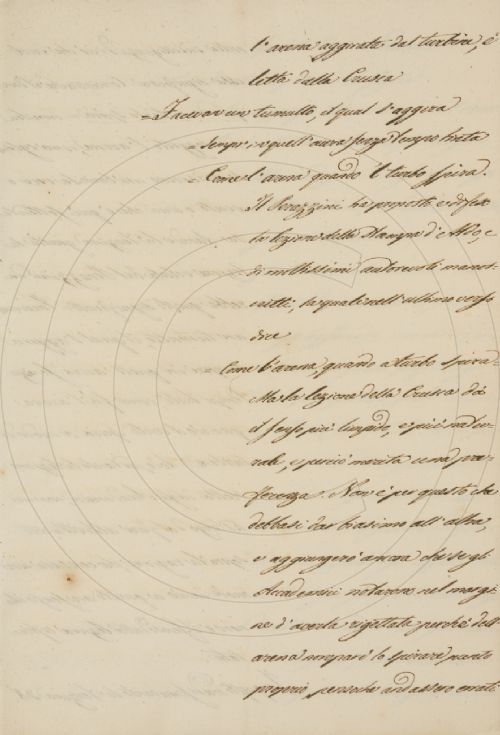 l'arena aggirata dal turbine, è
letta dalla Crusca
= Facevan un tumulto, il qual s'aggira
= Sempr' in quell'aura senza tempo tinta
= Come l'arena quando 'l turbo spira.
Il Perazzini ha proposto e difesa
la lezione della Stampa d'Aldo, e
di moltissimi autorevoli mano-
scritti, la quale nell'ultimo verso
dice
= Come l'arena, quando a turbo spira =
Ma la lezione della Crusca dà
il senso più limpido, e più natu-
rale, e perciò merita una pre-
ferenza. Non è per questo che
debbasi dar biasimo all'altra,
e aggiungerò ancora che se gli
Accademici notarono nel margi-
ne d'averla rigettata perchè dell'
arena non pare lo spirare punto
proprio, pensochè andassero errati